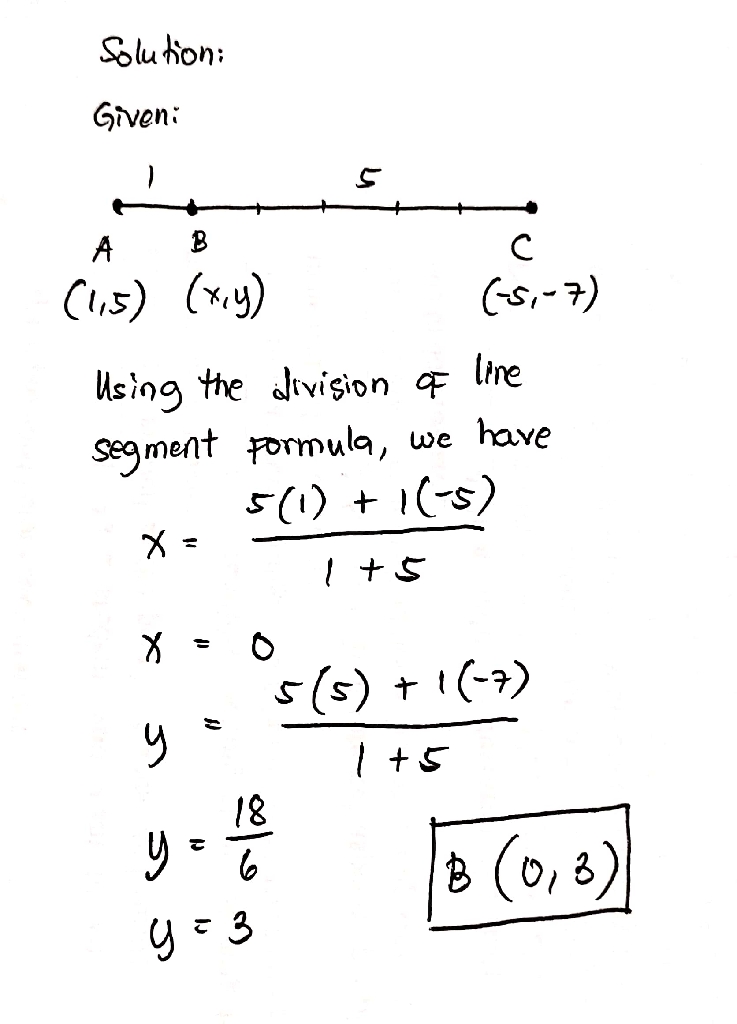 Solution:
Given:
1 5
A B C
(1,5) (x,y) (-5,-7)
Using the division of line
segment formula, we have
x = 5(1) + 1(-5)
1 + 5
x = 0
y = 5(5) + 1(-7)
1 + 5
y = 18
6
y = 3
B (0,3)